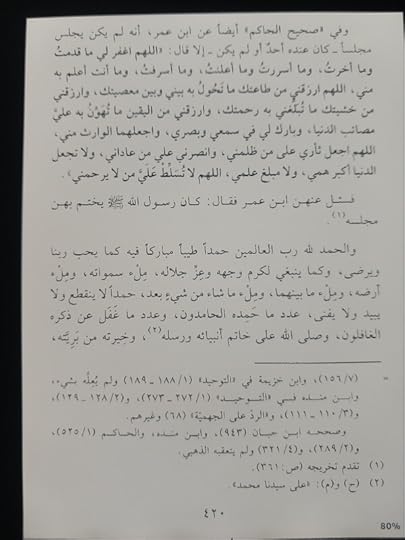 وفي «صحيح الحاكم» أيضاً عن ابن عمر، أنه لم يكن يجلس
مجلساً ـ كان عنده أحدٌ أو لم يكن ـ إلا قال: «اللهم اغفر لي ما قدمتُ
وما أخرتُ، وما أسررتُ وما أعلنتُ، وما أسرفتُ، وما أنت أعلم به
مني، اللهم ارزقني من طاعتك ما تَحُولُ به بيني وبين معصيتك، وارزقني
من خشيتك ما تُبلِّغني به رحمتك، وارزقني من اليقين ما تُهَوِّنُ به عليَّ
مصائب الدنيا، وبارك لي في سمعي وبصري، واجعلهما الوارث مني،
اللهم اجعل ثأري على من ظلمني، وانصرني على من عاداني، ولا تجعل
الدنيا أكبر همي، ولا مبلغ علمي، اللهم لا تُسَلِّطْ عَلَيَّ من لا يرحمني».
فسئل عنهن ابن عمر فقال: كان رسول الله ﷺ يختم بهن
مجلسه(١).
والحمد لله رب العالمين حمداً طيباً مباركاً فيه كما يحب ربنا
ويرضى، وكما ينبغي لكرم وجهه وعِزِّ جلاله، مِلْء سمواته، ومِلْء
أرضه، ومِلْء ما بينهما، ومِلْء ما شاء من شيءٍ بعد، حمداً لا ينقطع ولا
يبيد ولا يفنى، عدد ما حَمِده الحامدون، وعدد ما غَفَل عن ذكره
الغافلون، وصلى الله على خاتم أنبيائه ورسله(٢)، وخِيرته من بَرِيَّته،
= (١٥٦/٧)، وابن خزيمة في «التوحيد» (١٨٨/١ ـ ١٨٩) ولم يُعِلَّه بشيء،
وابن منده في «التوحيد» (٢٧٢/١ ـ ٢٧٣)، و(١٢٨/٢ ـ ١٢٩)،
و(١١٠/٣ ـ ١١١)، و«الرد على الجهميَّة» (٦٨) وغيرهم.
وصححه ابن حبان (٩٤٣)، وابن منده، والحاكم (٥٢٥/١)،
و(٢٨٩/٢)، و(٣٢١/٤) ولم يتعقبه الذهبي.
(١) تقدم تخريجه (ص:٣٦١).
(٢) (ح) و(م): «على سيدنا محمد».
٤٢٠
80%